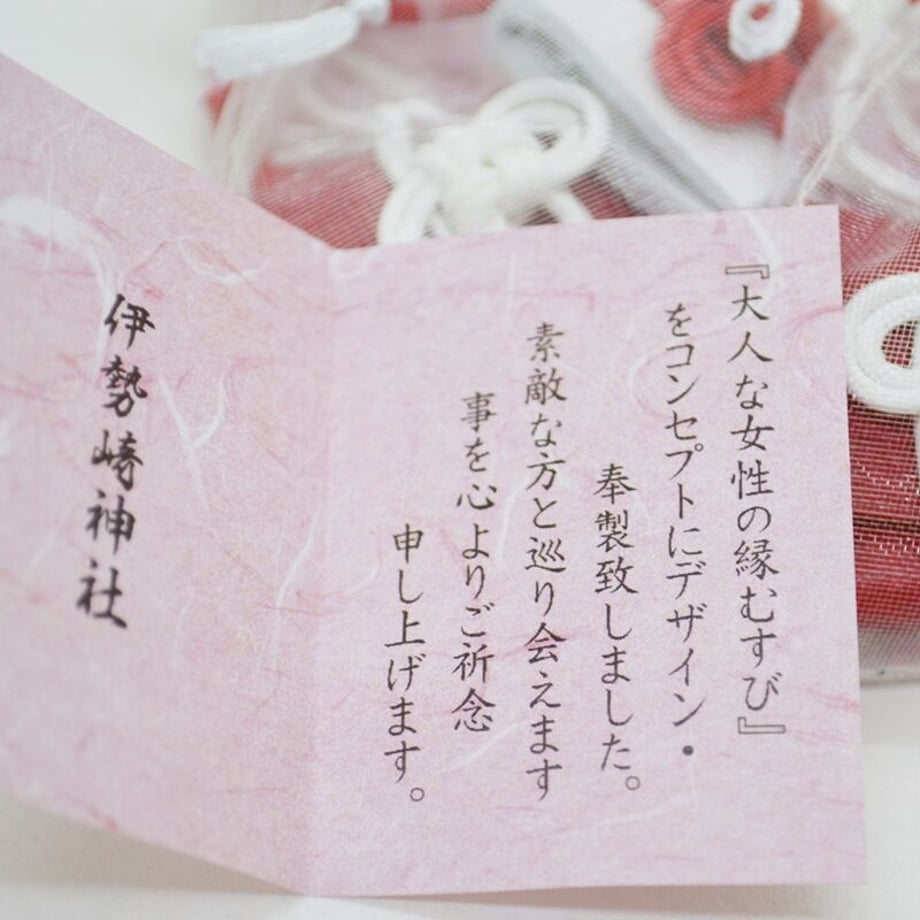 『大人な女性の縁むすび』
をコンセプトにデザイン・
奉製致しました。
素敵な方と巡り会えます
事を心よりご祈念
申し上げます。
伊勢崎神社